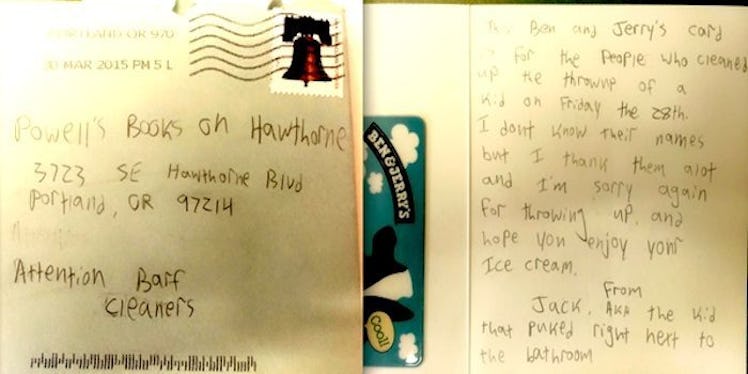 PORTLAND OR 970
MAR 2015 PM 5 L
Powell's Books on Hawthorne
3723 SE Hawthorne Blvd
Portland, OR 97214
Attention Barf
Cleaners
BEN & JERRY'S
Cool!
This Ben and Jerry's card
is for the people who cleaned
up the thrownup of a
kid on Friday the 28th.
I dont know their names
but I thank them alot
and I'm sorry again
for throwing up, and
hope you enjoy your
Ice cream.
From
Jack, AKA the kid
that puked right next to
the bathroom